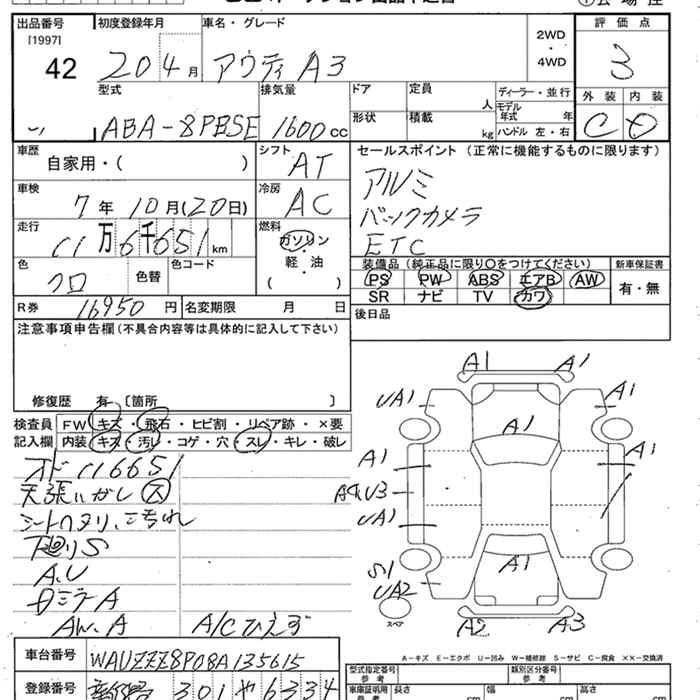 出品番号 初度登録年月 車名・グレード 評価点
[1997]
42 20 4月 アウディ A3 2WD・4WD 3
外装 内装
型式 排気量 ドア 定員 人 ディーラー・並行
ABA-8PBSE 1600cc 形状 積載 kg モデル年式 年 ハンドル 左・右 C D
車歴 自家用・( ) シフト AT セールスポイント (正常に機能するものに限ります)
車検 7年10月(20日) 冷房 AC アルミ
走行 11万6千651km 燃料 ガソリン・軽・油 ( ) バックカメラ
ETC
色 クロ 色替 色コード 装備品 (純正品に限り○をつけてください) 新車保証書
PS PW ABS エアB AW 有・無
SR ナビ TV カワ
R券 16950円 名変期限 月 日 後日品
注意事項申告欄(不具合内容等は具体的に記入して下さい)
修復歴 有 〔箇所 〕
検査員記入欄 FW キズ・飛石・ヒビ割・リペア跡・×要
内装 キズ・汚レ・コゲ・穴・スレ・キレ・破レ
オド116651
天張はがし ス
シートヘタリ、こすれ
下廻りS
A.U
AW.A A/Cひえず
A1 A1
UA1 A1
A1
A1 A1
A4.U3
UA1
S1
UA2 A1
スペア A2 A3
A-キズ E-エクボ U-凹み W-補修跡 S-サビ C-腐食 ××-交換済
車台番号 WAUZZZ8P08A135615
型式指定番号 参考 類別区分番号 参考
登録番号 301 や 6334
車庫証明用 参考 長さ cm 幅 cm 高さ cm